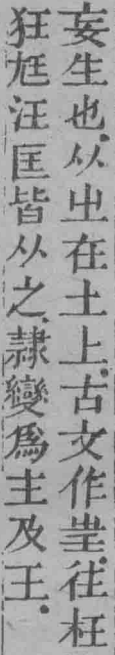 妄生也.从㞢在土上.古文作𡉚.往枉
狂尪汪匡皆从之.隸變爲主及王.